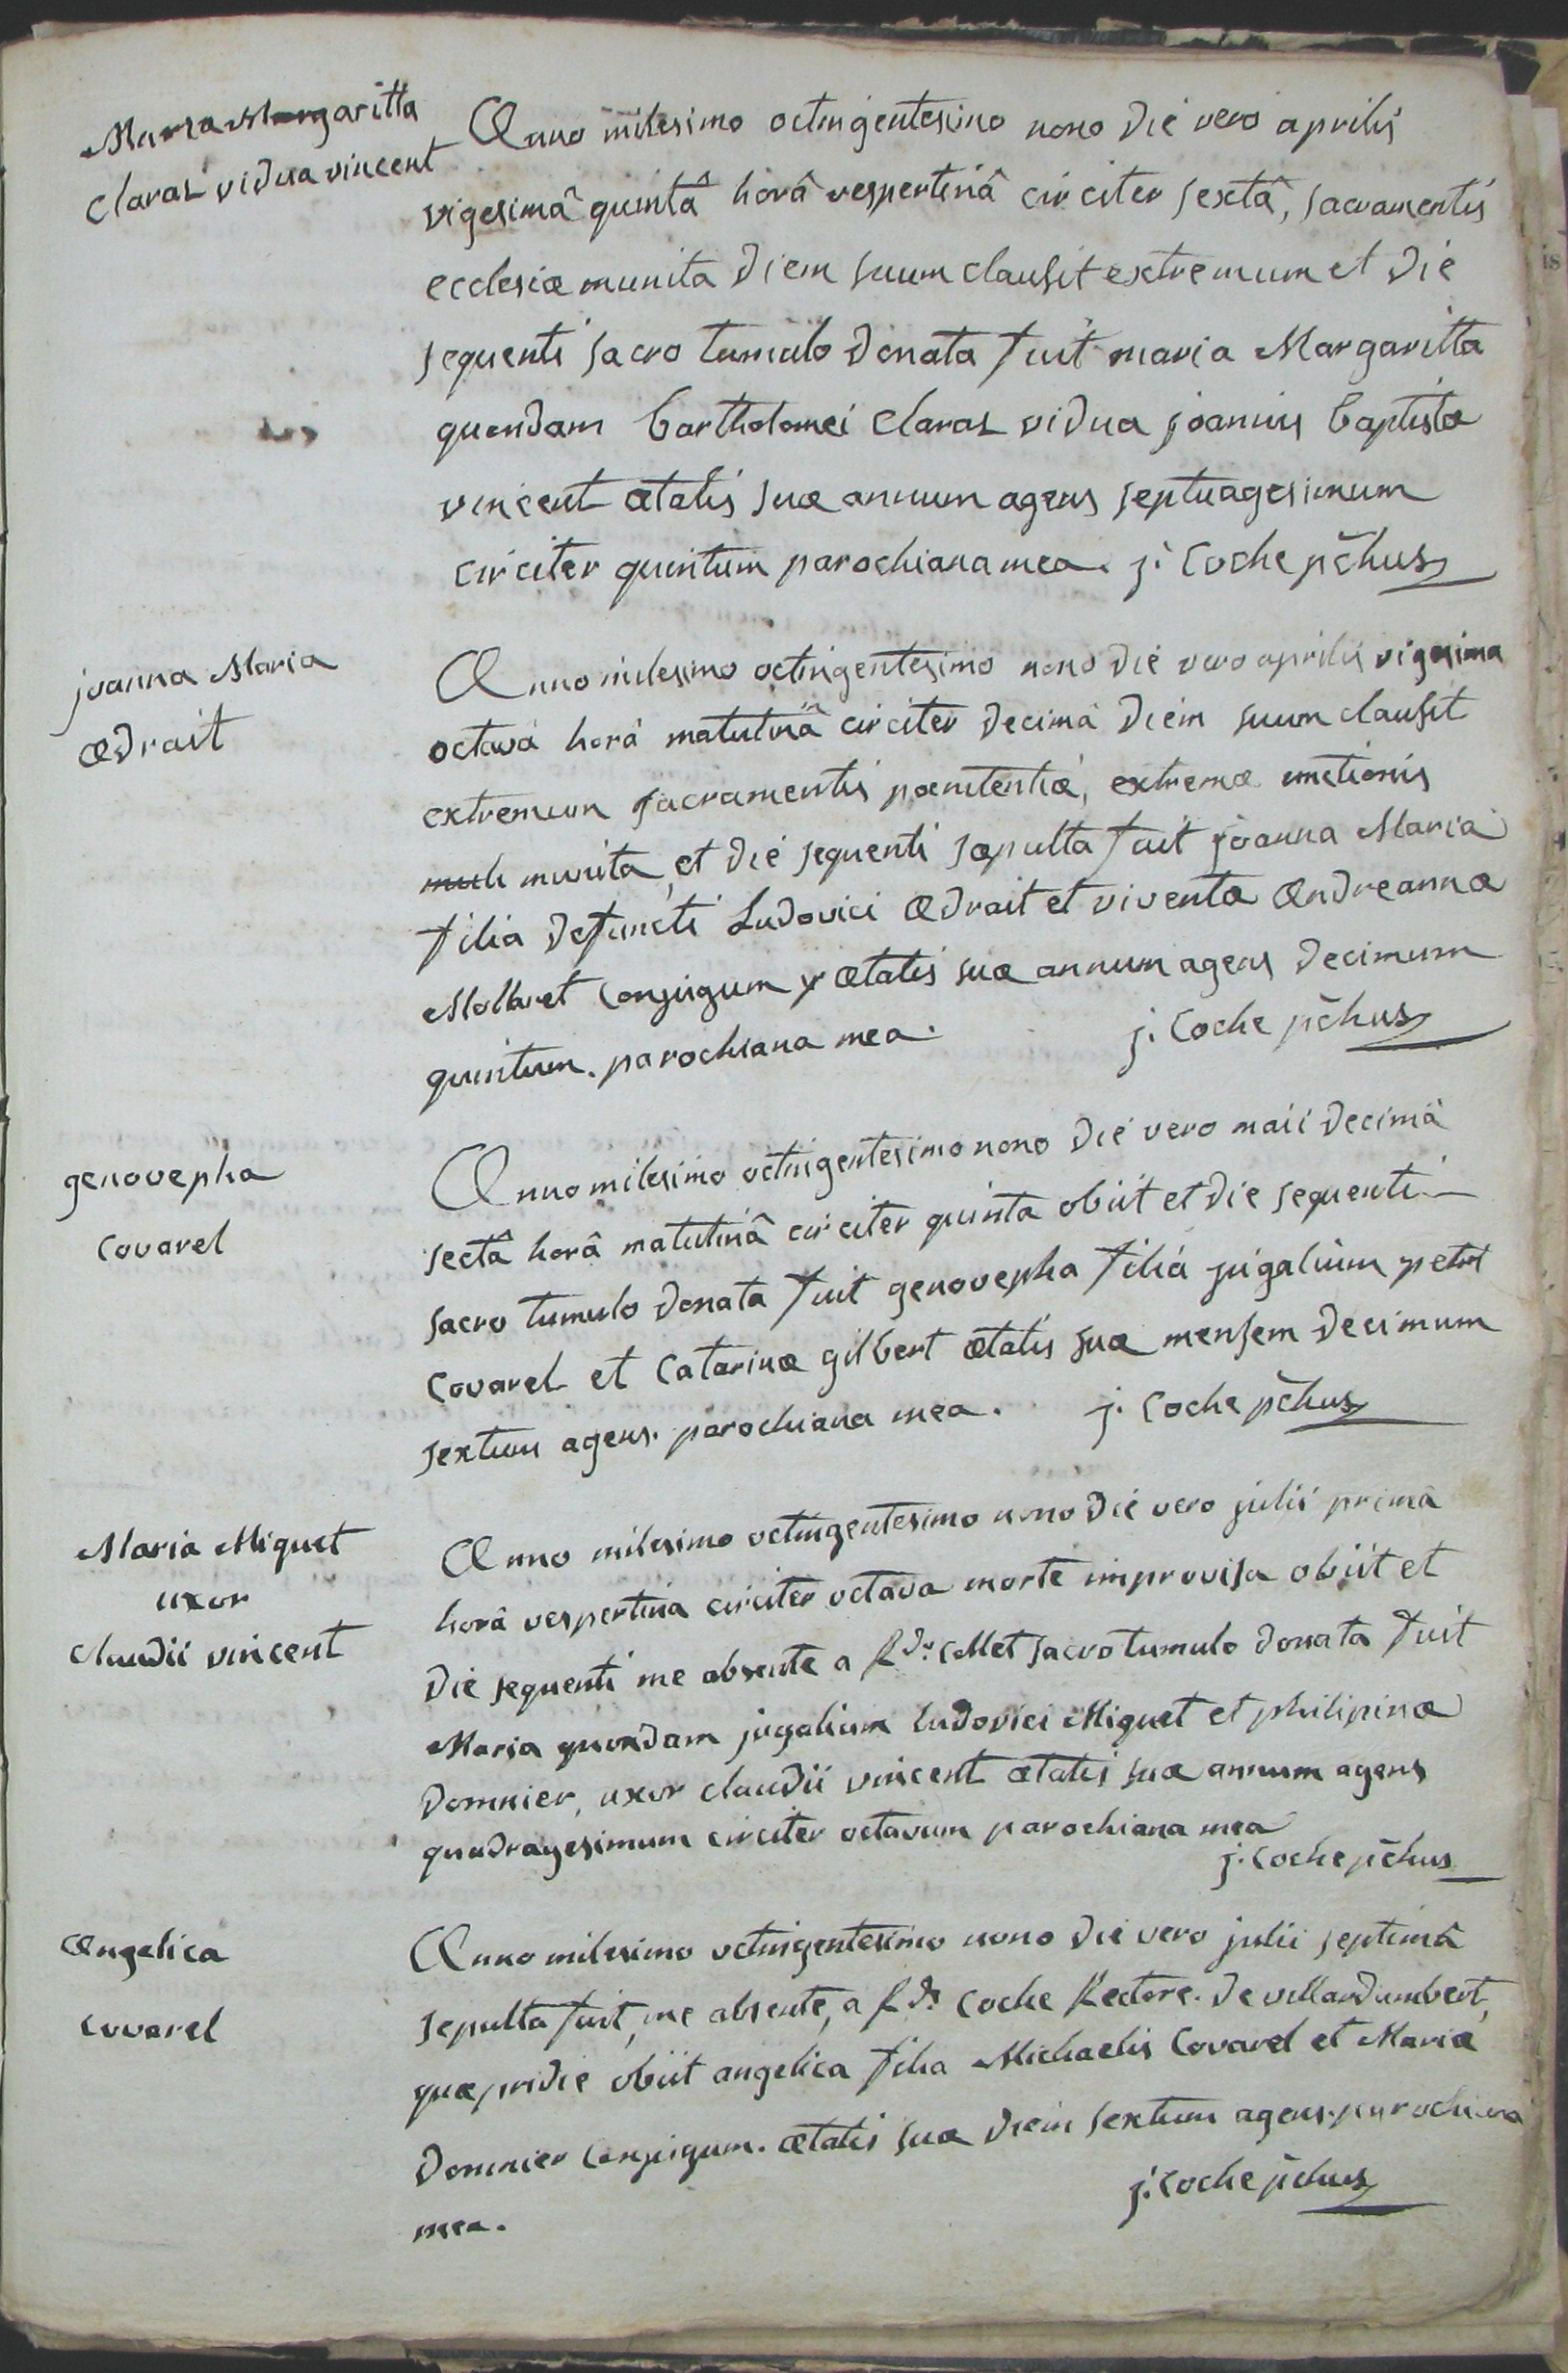 Maria Margaritta
Claraz vidua vincent
Anno milesimo octingentesimo nono die vero aprilis
vigesimâ quintâ horâ vespertinâ circiter sextâ, sacramentis
ecclesiæ munita diem suum clausit extremum et die
sequenti sacro tumulo donata fuit maria Margaritta
quondam bartholomei Claraz vidua joannis baptistæ
vincent ætatis suæ annum agens septuagesimum
circiter quintum parochiana mea. j. Coche pchus
joanna Maria
ædrait
Anno milesimo octingentesimo nono die vero aprilis vigesima
octavâ horâ matutinâ circiter decimâ diem suum clausit
extremum sacramentis pœnitentiæ, extremæ unctionis
munita, et die sequenti sepulta fuit joanna Maria
filia defuncti Ludovici ædrait et viventæ andreannæ
Mollaret conjugum ætatis suæ annum agens decimum
quintum. parochiana mea. j. Coche pchus
genovepha
Covarel
Anno milesimo octingentesimo nono die vero maii decimâ
sectâ horâ matutinâ circiter quinta obiit et die sequenti
sacro tumulo donata fuit genovepha filia jugalium petri
Covarel et Catarinæ gilbert ætatis suæ mensem decimum
sextum agens. parochiana mea. j. Coche pchus
Maria Miquet
uxor
claudii vincent
Anno milesimo octingentesimo nono die vero julii primâ
horâ vespertina circiter octava morte improvisa obiit et
die sequenti me absente a Rdo. Collet sacro tumulo donata fuit
Maria quondam jugalium ludovici Miquet et philipinæ
domnier, uxor claudii vincent ætatis suæ annum agens
quadragesimum circiter octavum parochiana mea
j. Coche pchus
Angelica
Covarel
Anno milesimo octingentesimo nono die vero julii septimâ
sepulta fuit, me absente, a Rdo. Coche Rectore. de villardumbert,
quæ pridie obiit angelica filia Michaelis Covarel et Mariæ
domnier conjugum. ætatis suæ diem sextum agens. parochiana
mea. j. Coche pchus